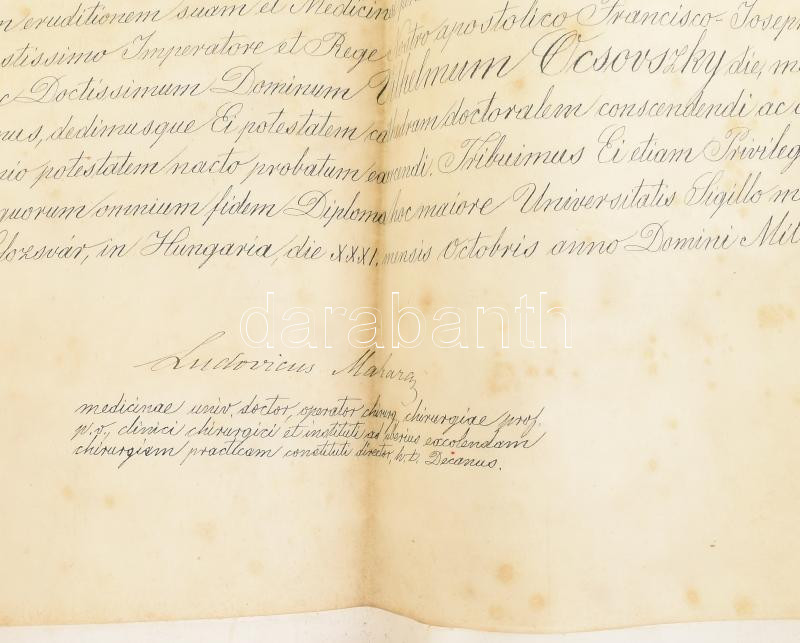 eruditionem suam et Medicin
stissimo Imperatore et Rege Nostro apostolico Francisco-Joseph
c Doctissimum Dominum Vilhelmum Ocsovszky die, m
nus, dedimusque Ei potestatem cathedram doctoralem conscendendi ac
nio potestatem nacto probatum Tribuimus Ei etiam Privileg
quorum omnium fidem Diploma hoc maiore Universitatis Sigillo m
lozsvár, in Hungaria, die XXXI. mensis Octobris anno Domini Mil
darabanth
Ludovicus
medicinae univ. doctor, operator chirurg, chirurgiae prof.
p. o., clinici chirurgici et instituti ad uberius excolendam
chirurgiam practicam constituti director, h. t. Decanus.